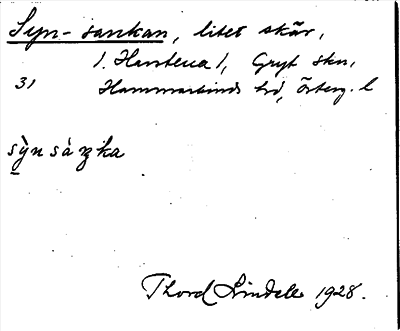 Syn-sankan, litet skär,
1. Harstena 1, Gryt skn,
31 Hammarkinds hd, Österg. l
sỳnsàŋka
Thord Lindell 1928.